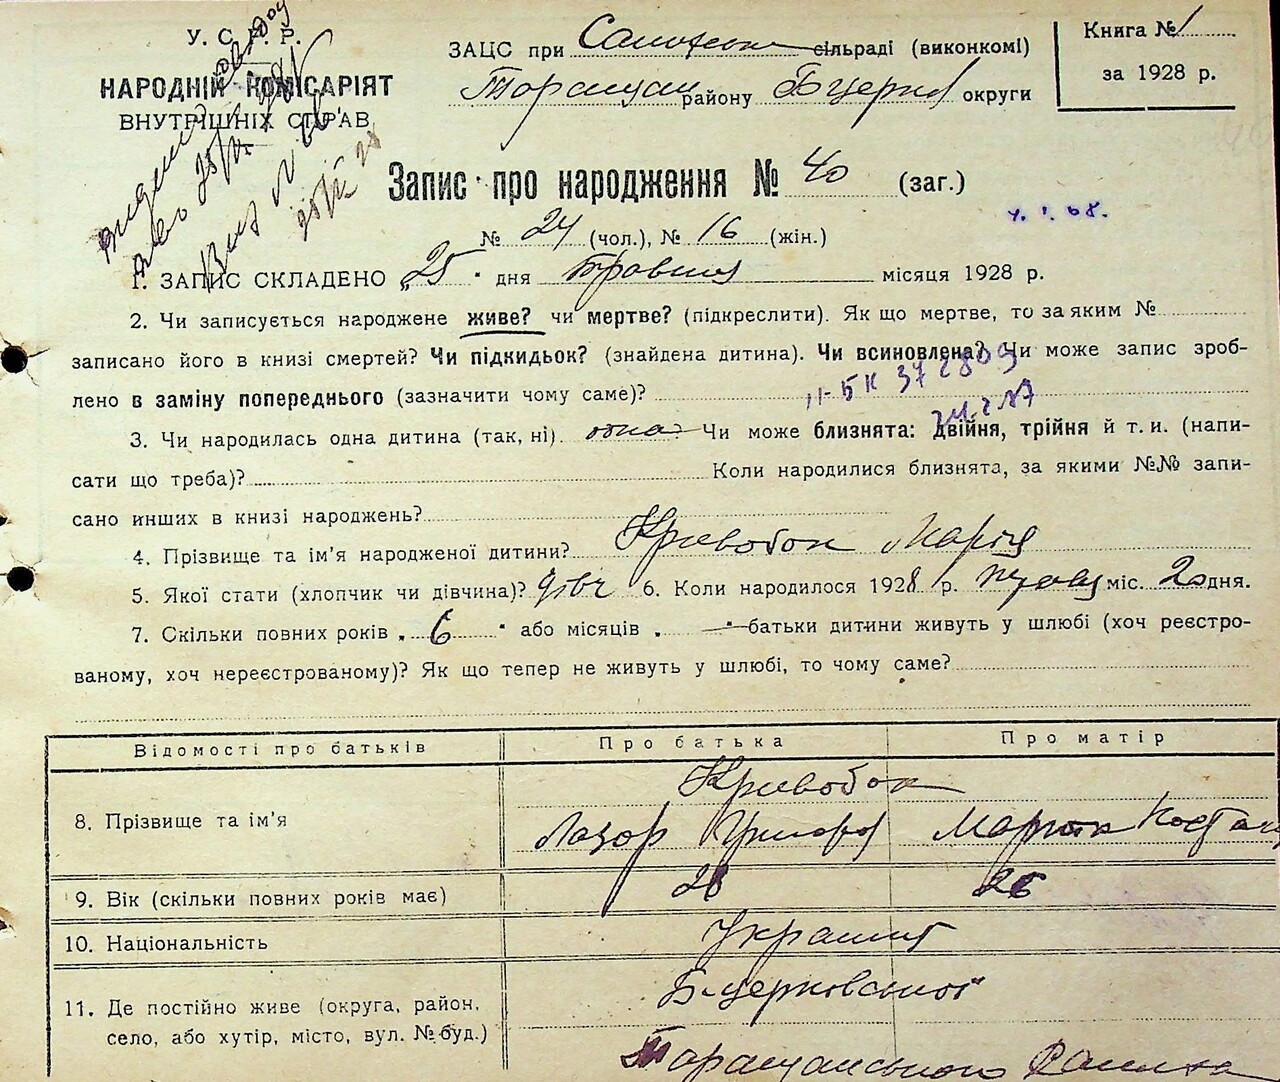 У. С. Р. Р.
НАРОДНІЙ КОМІСАРІЯТ
ВНУТРІШНІХ СПРАВ
ЗАЦС при сільраді (виконкомі)
Таращан району Б церків округи
Книга № 1
за 1928 р.
Запис про народження № 40 (заг.)
№ 24 (чол.), № 16 (жін.)
1. ЗАПИС СКЛАДЕНО „25" дня Травня місяця 1928 р.
2. Чи записується народжене живе? чи мертве? (підкреслити). Як що мертве, то за яким №
записано його в книзі смертей? Чи підкидьок? (знайдена дитина). Чи всиновлена? Чи може запис зроб-
лено в заміну попереднього (зазначити чому саме)?
II-БК 372809
3. Чи народилась одна дитина (так, ні). одна Чи може близнята: двійня, трійня й т. и. (напи-
сати що треба)? Коли народилися близнята, за якими №№ запи-
сано инших в книзі народжень?
4. Прізвище та ім'я народженої дитини? Кривобок Марія
5. Якої стати (хлопчик чи дівчина)? дівч 6. Коли народилося 1928 р. травня міс. 20 дня.
7. Скільки повних років „6" або місяців „—" батьки дитини живуть у шлюбі (хоч реєстро-
ваному, хоч нереєстрованому)? Як що тепер не живуть у шлюбі, то чому саме?
Відомості про батьків Про батька Про матір
Кривобок
8. Прізвище та ім'я Лазор
9. Вік (скільки повних років має) 26
10. Національність Україн
11. Де постійно живе (округа, район, Б-церковської
село, або хутір, місто, вул. № буд.)
Таращанського Району